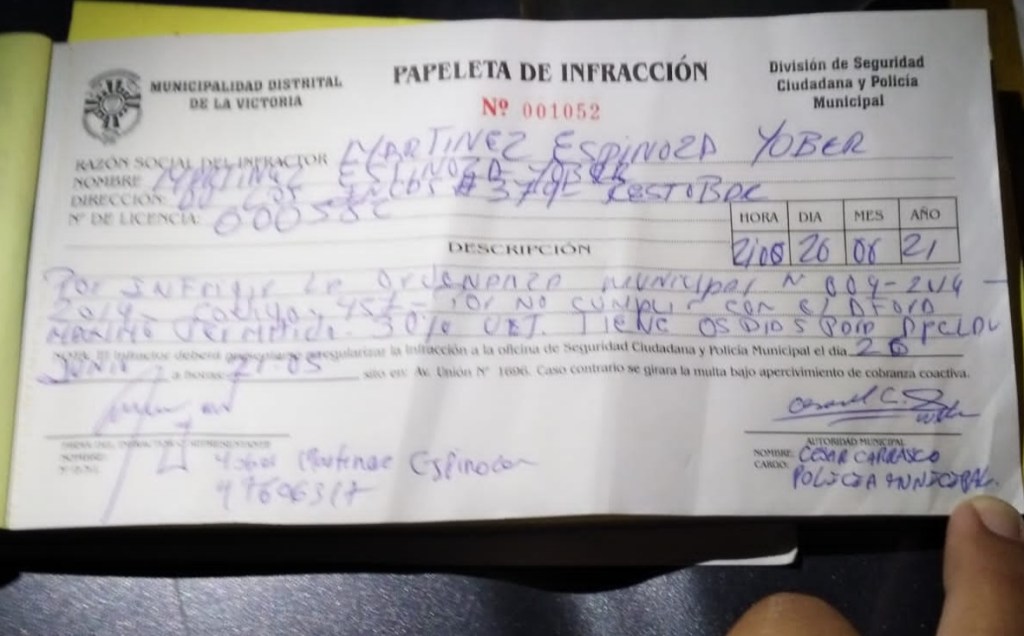 MUNICIPALIDAD DISTRITAL
DE LA VICTORIA
PAPELETA DE INFRACCIÓN
Nº 001052
División de Seguridad
Ciudadana y Policía
Municipal
RAZÓN SOCIAL DEL INFRACTOR MARTINEZ ESPINOZA YOBER
NOMBRE MARTINEZ ESPINOZA YOBER
DIRECCIÓN: LOS INCAS # 379 RESTOBAR
Nº DE LICENCIA:
HORA DIA MES AÑO
26 06 21
DESCRIPCIÓN
POR INFRIGIR LA ORDENANZA MUNICIPAL N 009-
2019- Codigo POR NO CUMPLIR CON EL AFORO
MAXIMO PERMITIDO. 30% UIT. TIENE 05 DIAS PARA APELAR
NOTA: El infractor deberá apersonarse a regularizar la infracción a la oficina de Seguridad Ciudadana y Policía Municipal el día 26
JUNIO a horas 21-05 sito en: Av. Unión Nº 1606. Caso contrario se girara la multa bajo apercivimiento de cobranza coactiva.
Yober Martinez Espinoza
AUTORIDAD MUNICIPAL
NOMBRE: CESAR CARRASCO
CARGO: POLICIA MUNICIPAL